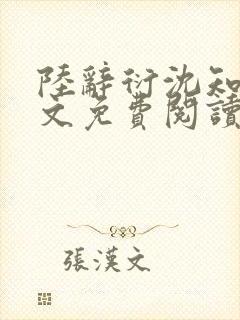 陸辭衍沈知
文免費閱讀
張漢文